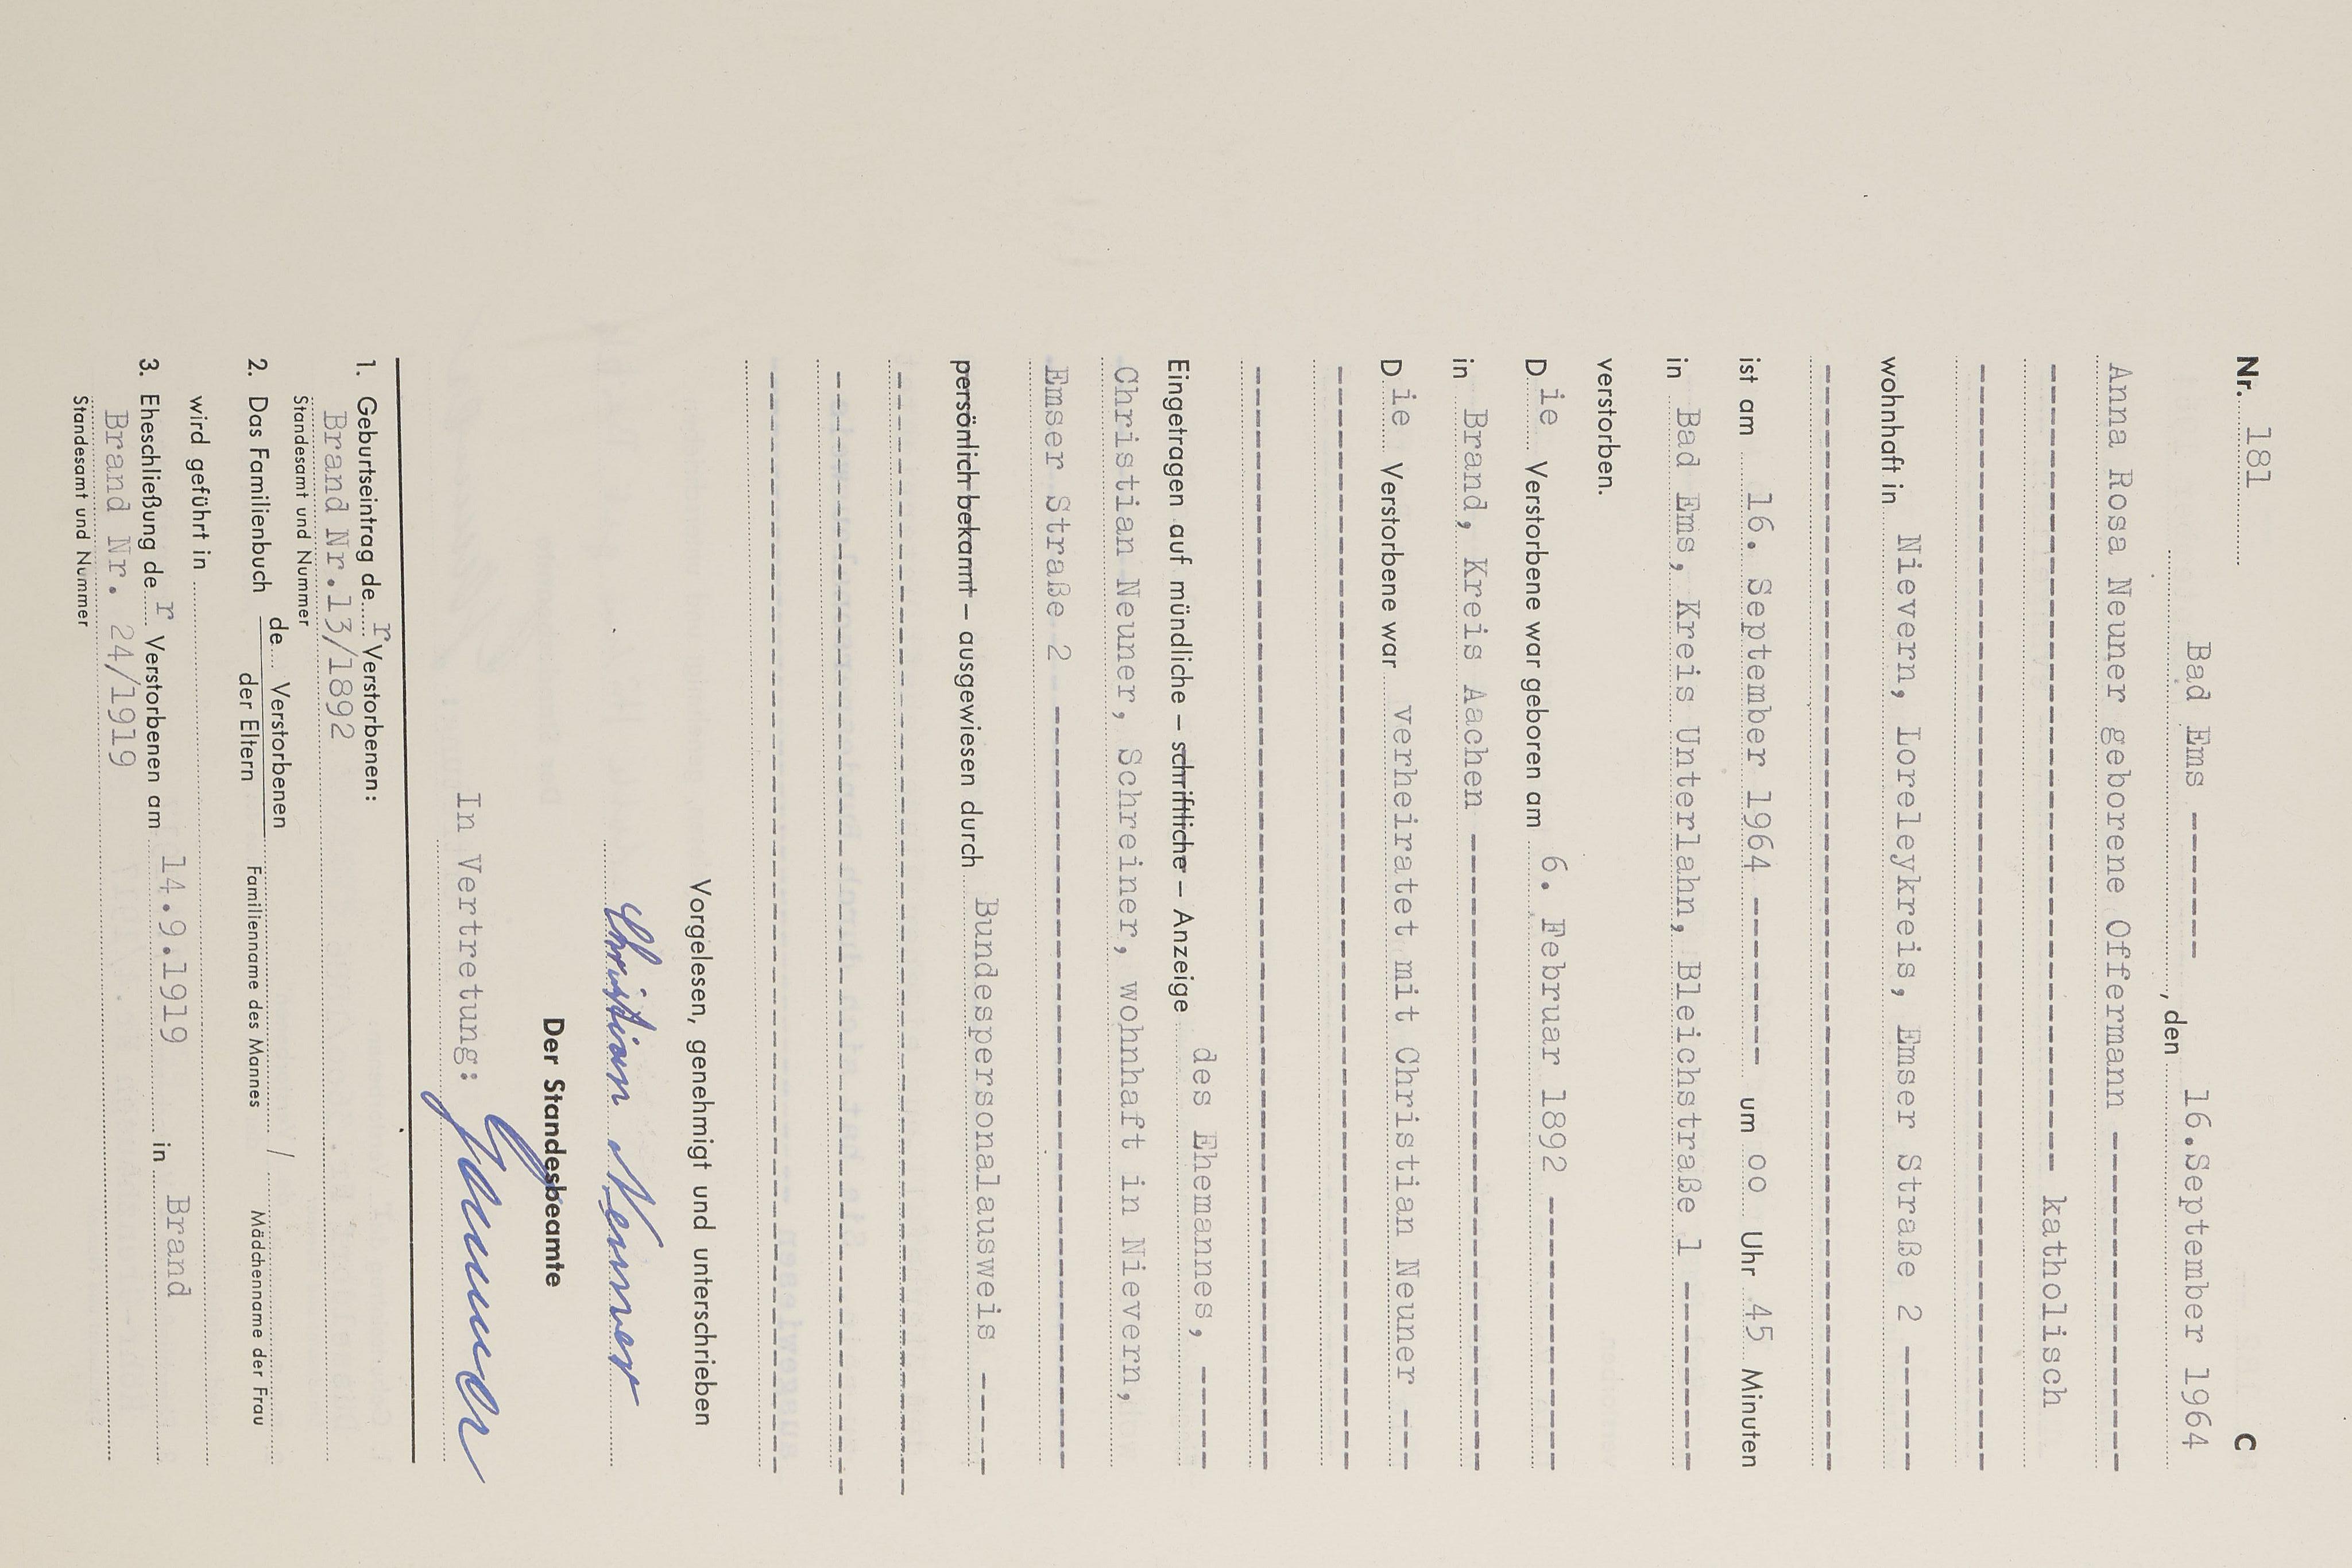 Nr. 181 C
Bad Ems -------, den 16.September 1964
Anna Rosa Neuner geborene Offermann ----------------
---------------------------------------- katholisch
wohnhaft in Nievern, Loreleykreis, Emser Straße 2 ------
ist am 16. September 1964 -------- um oo Uhr 45 Minuten
in Bad Ems, Kreis Unterlahn, Bleichstraße 1 ---------
verstorben.
Die Verstorbene war geboren am 6. Februar 1892 -------------
in Brand, Kreis Aachen -------------------------------
Die Verstorbene war verheiratet mit Christian Neuner ---
Eingetragen auf mündliche – schriftliche – Anzeige des Ehemannes, -----
Christian Neuner, Schreiner, wohnhaft in Nievern,
Emser Straße 2 -------------------------------------
persönlich bekannt – ausgewiesen durch Bundespersonalausweis -----
Vorgelesen, genehmigt und unterschrieben
Christian Neuner
Der Standesbeamte
In Vertretung:
1. Geburtseintrag der Verstorbenen:
Brand Nr.13/1892
Standesamt und Nummer
2. Das Familienbuch de Verstorbenen /
der Eltern Familienname des Mannes Mädchenname der Frau
wird geführt in
3. Eheschließung der Verstorbenen am 14.9.1919 in Brand
Brand Nr. 24/1919
Standesamt und Nummer